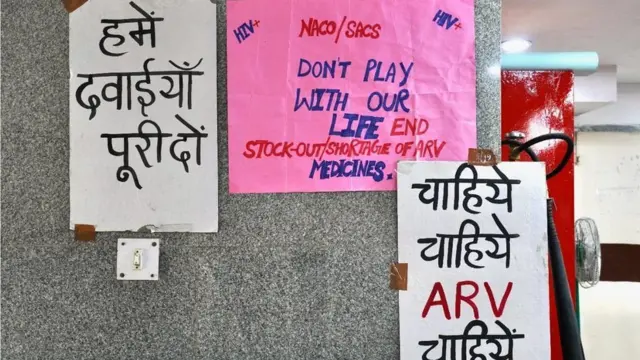 हमें
दवाईयाँ
पूरी दो
HIV+
NACO/SACS
HIV+
DON'T PLAY
WITH OUR
LIFE END
STOCK-OUT/SHORTAGE OF ARV
MEDICINES.
चाहिये
चाहिये
ARV
चाहिये